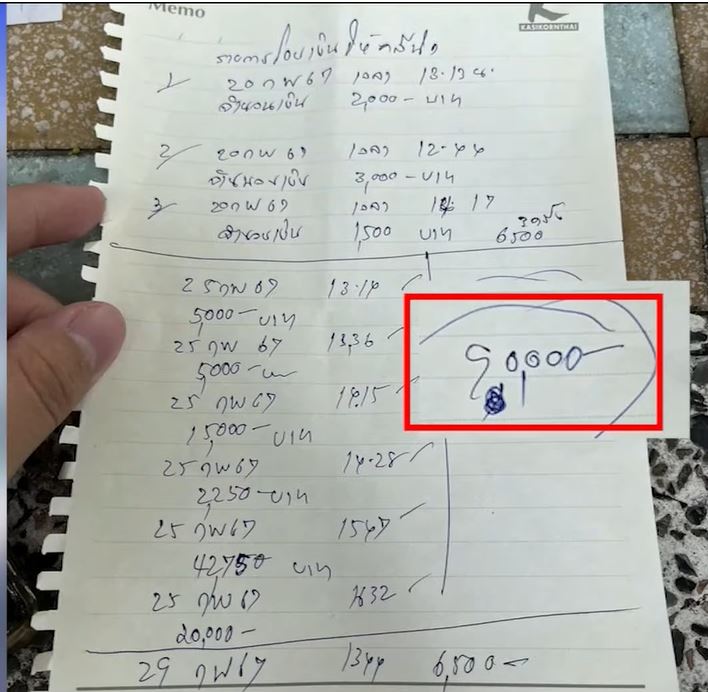 Memo
KASIKORNTHAI
รายการโอนเงินให้
1 20 กพ 67 เวลา 13.13 น.
จำนวนเงิน 2,000 - บาท
2 20 กพ 67 เวลา 12.44
จำนวนเงิน 3,000 - บาท
3 20 กพ 67 เวลา 17
จำนวนเงิน 1,500 บาท 6500
25 กพ 67 13.14
5,000 - บาท
25 กพ 67 13.36
5,000 -
25 กพ 67 14.15
15,000 - บาท
90,000 -
25 กพ 67 14.28
2,250 - บาท
25 กพ 67 1547
42750 บาท
25 กพ 67 1632
20,000 -
29 กพ 67 1344 6,500 -